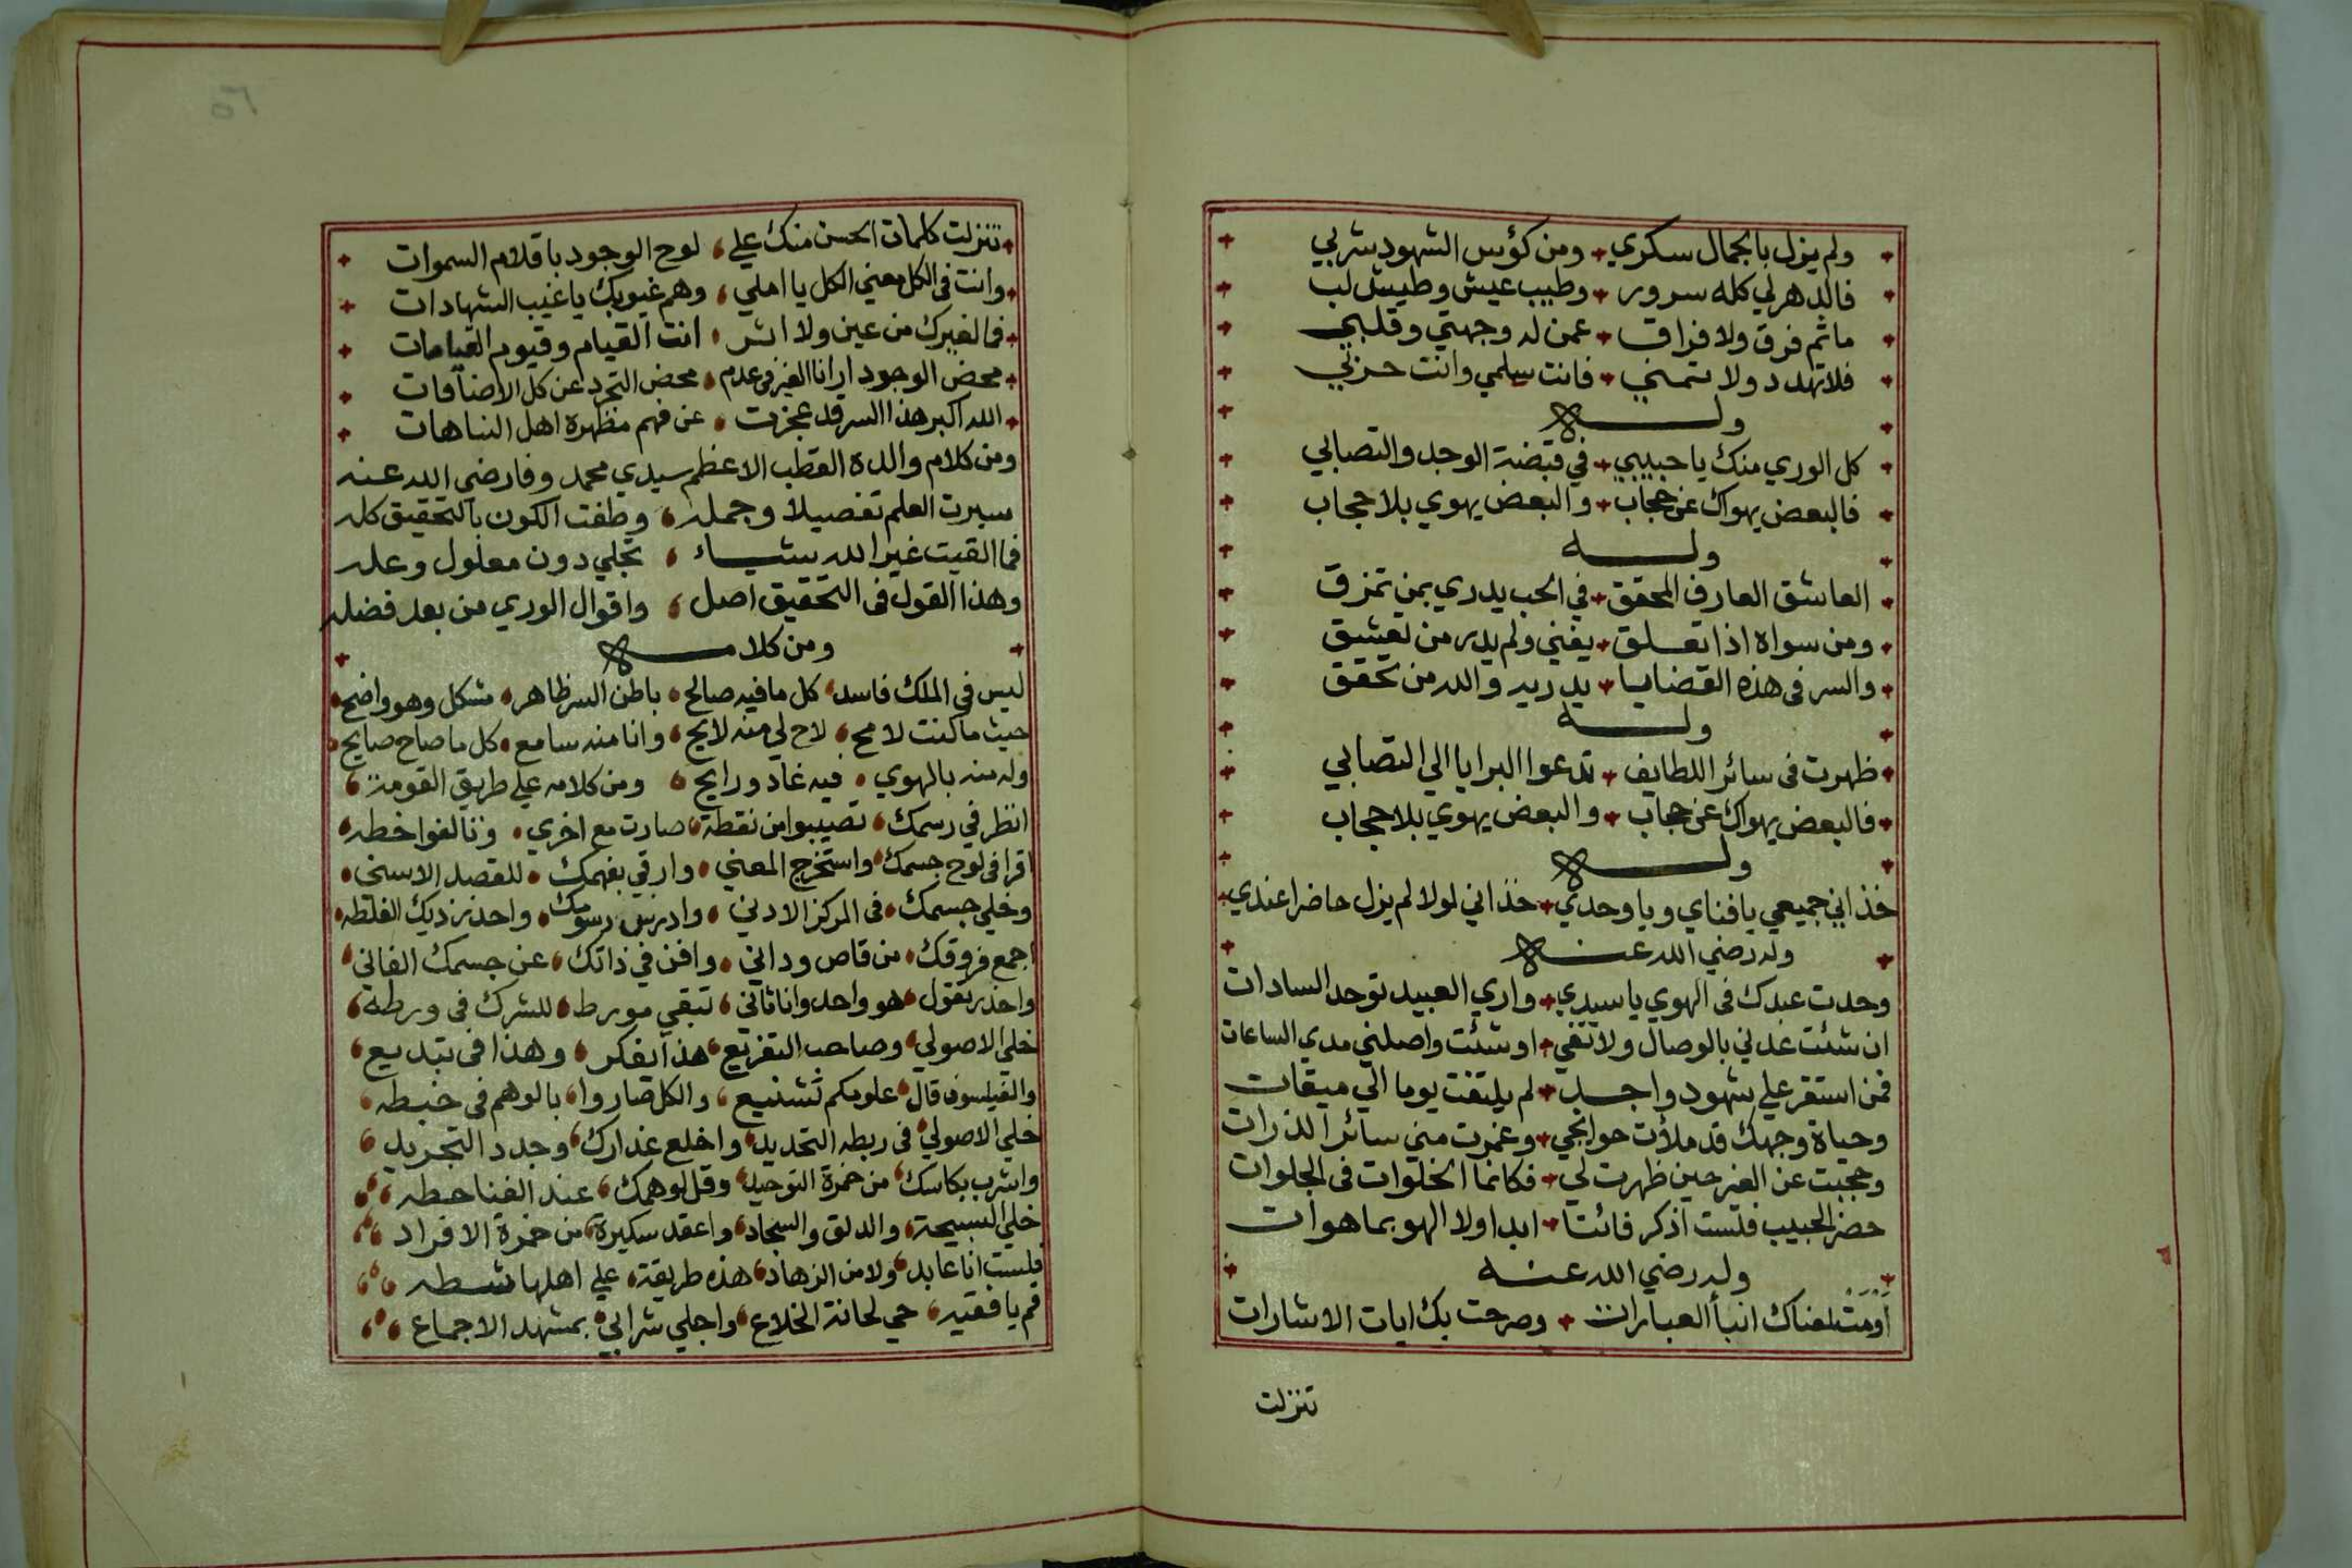 ولم يزل بالجمال سكري ومن كؤس الشهود شربي
فالدهر لي كله سرور وطيب عيش وطيش لب
ماثم فرق ولا فراق عمن له وجهتي وقلبي
فلا تهدد ولا تمني فانت سلمي وانت حزبي
وله
كل الوري منك يا حبيبي في قبضة الوجد والتصابي
فالبعض يهواك عن حجاب والبعض يهوي بلا حجاب
وله
العاشق العارف المحقق في الحب يدري بمن تمزق
ومن سواه اذا تعلق يفني ولم يدر من تعشق
والسر في هذه القضايا يدريه والله من تحقق
وله
ظهرت في سائر اللطايف تدعوا البرايا الي التصابي
فالبعض يهواك عن حجاب والبعض يهوي بلا حجاب
وله
خذاني جميعي يا فناي ويا وحدي خذاني لولا لم يزل حاضرا عندي
وله رضي الله عنه
وحدت عبدك في الهوي يا سيدي واري العبيد توحد السادات
ان شئت عدني بالوصال ولا تفي او شئت واصلني مدي الساعات
فمن استقر علي شهود واحد لم يلتفت يوما الي ميقات
وحياة وجهك قد ملأت جوانحي وغمرت مني سائر الذرات
وحجبت عن الغير حين ظهرت لي فكانما الخلوات في الجلوات
حضر الحبيب فلست اذكر فائتا ابدا ولا الهو بما هوات
وله رضي الله عنه
أومت لمعناك انبأ العبارات وصرحت بك ايات الاشارات
تنزلت
٥٦
تنزلت كلمات الحسن منك علي لوح الوجود باقلام السموات
وانت في الكل معني الكل يا املي وهم غيوبك يا غيب الشهادات
فما لغيرك من عين ولا اثر انت القيام وقيوم القيامات
محض الوجود ارانا الغير في عدم محض التجرد عن كل الاضافات
الله اكبر هذا السر قد عجزت عن فهم مظهره اهل النباهات
ومن كلام والده القطب الاعظم سيدي محمد وفا رضي الله عنه
سبرت العلم تفصيلا وجمله وطفت الكون بالتحقيق كله
فما القيت غير الله شياء تجلي دون معلول وعله
وهذا القول في التحقيق اصل واقوال الوري من بعد فضله
ومن كلامه
ليس في الملك فاسد كل ما فيه صالح باطن السر ظاهر مشكل وهو واضح
حيث ما كنت لامح لاح لي منه لايح وانا منه سامع كل ما صاح صايح
وله منه بالهوي فيه غاد ورايح ومن كلامه علي طريق القومة
انظر في رسمك تصيبوا من نقطة صارت مع اخري وتالفوا خطه
اقرا في لوح جسمك واستخرج المعني وارقي بفهمك للقصد الاسني
وخلي جسمك في المركز الادني وادرس رسومك واحذر تزديك الغلطه
اجمع فروقك من قاص وداني وافن في ذاتك عن جسمك الفاني
واحذر تقول هو واحد وانا ثاني تبقي مورط للشرك في ورطة
خلي الاصولي وصاحب التفريع هذا بفكر وهذا في تبديع
والفيلسوف قال علومكم تشنيع والكل صاروا بالوهم في خبطه
خلي الاصولي في ربطه التحديد واخلع عذارك وجدد التجريد
واشرب بكاسك من خمرة التوحيد وقل لوهمك عند الفنا حطه
خلي السبيحة والدلق والسجاد واعقد سكيرة من خمرة الافراد
فلست انا عابد ولا من الزهاد هذه طريقة علي اهلها شطه
قم يا فقيه حي لحانة الخلاع واجلي شرابي بمشهد الاجماع